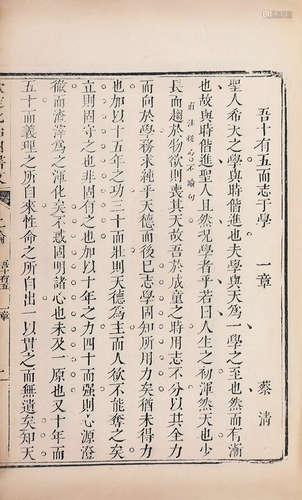 吾十有五而志于學 一章 蔡清
聖人希天之學與時偕進焉夫學與天為一學之至也然而有漸
也故與時偕進聖人且然況學者乎若曰人生之初渾然天也少
長而趨於物欲則喪其天故吾於成童之時用志不分以其全力
而向於學務求純乎天德而後已志學固知所用力矣猶未得力
也加以十五年之功三十而壯則天德為主而人欲不能奪之矣
立則固守之也非固有之也加以十年之力四十而強則心源澄
徹而渣滓為之渾化矣不惑固明諸心也未及一原也又十年而
五十而義理之所自來性命之所自出一以貫之而無遺矣知天